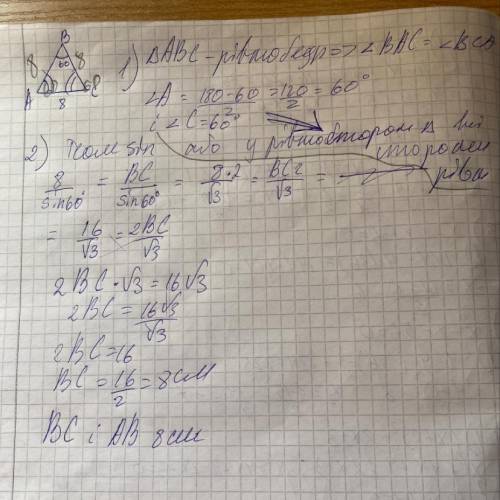 B
8 60 8
A 60 60 C
8
1) ΔABC - рівнобедр => ∠BAC = ∠BCA
∠A = (180-60)/2 = 120/2 = 60°
і ∠C = 60°
2) Теом sin або у рівностороном Δ всі сторони рівні
8/sin60° = BC/sin60° = 8·2/√3 = BC2/√3 =
= 16/√3 = 2BC/√3
2BC · √3 = 16√3
2BC = 16√3/√3
2BC = 16
BC = 16/2 = 8см
BC і AB 8см